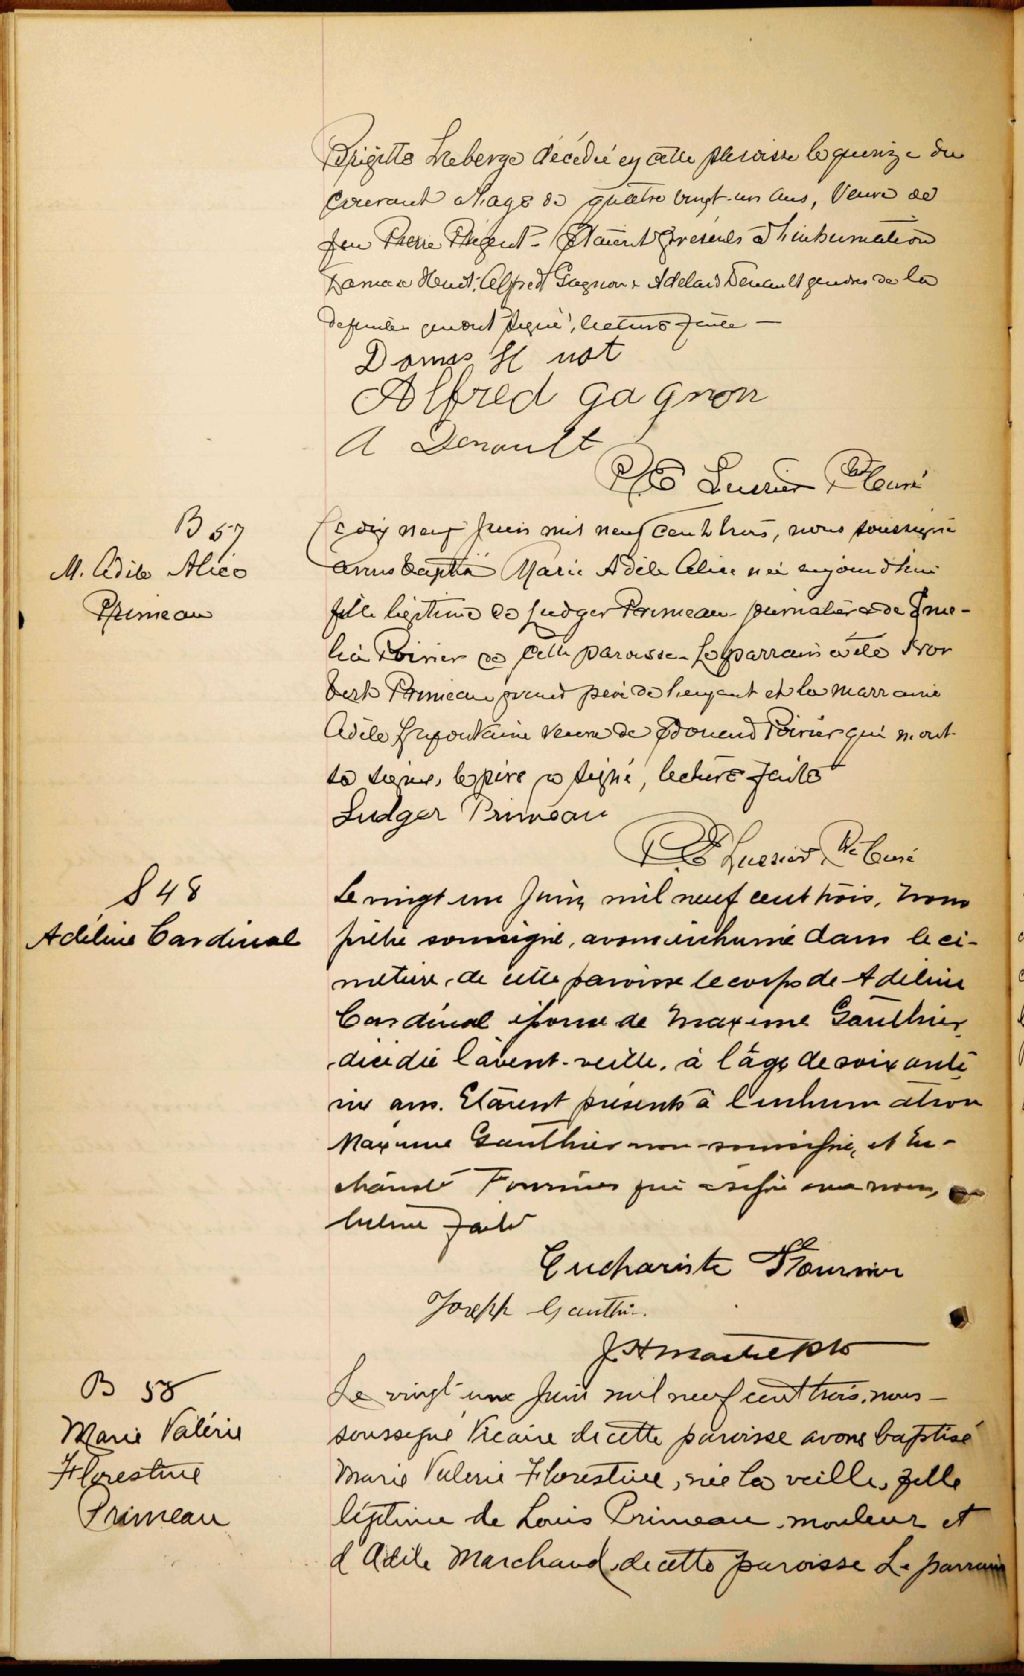 Brigitte Leberge décédée en cette paroisse le quinze du
courant à l'age de quatre vingt-un ans, Veuve de
feu Pierre Présents à l'inhumation
Alfred Gagnon & Adelard Denault gendres de la
defunte qui ont signé, lecture faite —
Damas H not
Alfred gagnon
A Denault
P.E Lussier Ptre Curé
B 57
M. Adèle Alice
Primeau
Le dix neuf Juin mil neuf cent trois, nous soussigné
avons baptisé Marie Adèle Alice née aujourd'hui
fille légitime de Ludger Primeau journalier & de Amé-
lia Poirier de cette paroisse. Le parrain a été Nor
bert Primeau grand père de l'enfant et la marraine
Adèle Lafontaine veuve de Edouard Poirier qui n'ont
su signer, le père a signé, lecture faite
Ludger Primeau
P E Lussier Ptre Curé
S 48
Adéline Cardinal
Le vingt un Juin mil neuf cent trois, nous
prêtre soussigné, avons inhumé dans le ci-
metière de cette paroisse le corps de Adéline
Cardinal épouse de Maxime Gauthier,
décédée l'avant-veille, à l'âge de soixante
six ans. Etaient présents à l'inhumation
Maxime Gauthier non-soussigné, et Eu-
chariste Fournier qui a signé avec nous,
lecture faite
Euchariste Fournier
Joseph Gauthier
J.H ptre
B 58
Marie Valérie
Florestine
Primeau
Le vingt-un Juin mil neuf cent trois, nous —
soussigné Vicaire de cette paroisse avons baptisé
Marie Valerie Florestine, née la veille, fille
légitime de Louis Primeau, mouleur et
d'Adèle Marchand, de cette paroisse Le parrain